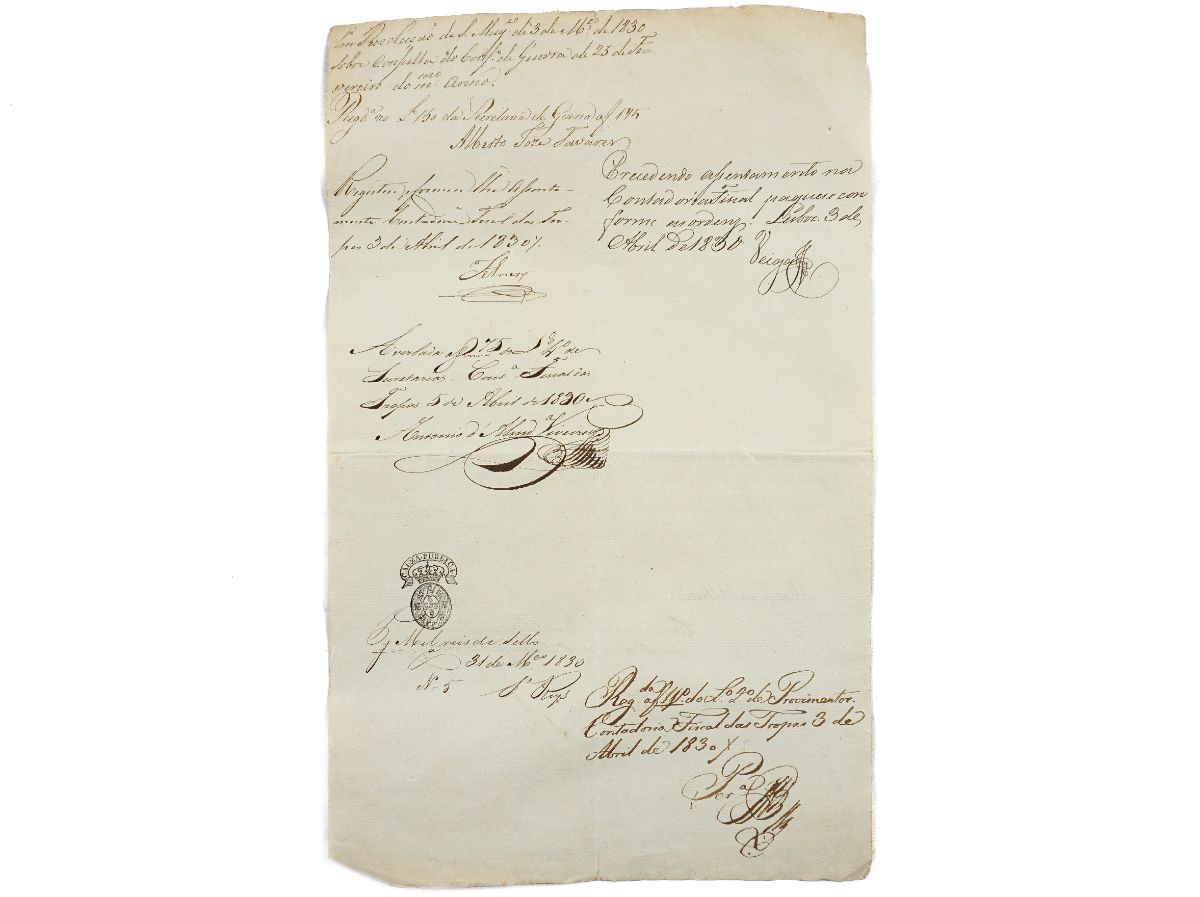 Por Resolução de S. Mag.e de 3 de M.ço de 1830
sobre Consulta do Cons.o de Guerra de 25 de Fe-
vereiro do m.mo anno.
Reg.do no L.o 150 da Secretaria de Guerra a f 145
Alberto Joze Tavares
Registese, e forme lhe assenta-
mento Contadoria Fiscal das Tro-
pas 3 de Abril de 1830
Precedendo assentamento na
Contadoria Fiscal paguese con
forme as ordens. Lisboa 3 de
Abril de 1830
Veiga
Averbada a f 275 do L.o 4.o de
Secretarias. Cont.a Fiscal das
Tropas 5 de Abril de 1830
Antonio d'Almd.a
CAIXA PUBLICA
Pg Mil reis de sello
31 de M.ço 1830
N.o 5
Reg.do a f 140 do L.o 2.o de Provimentos.
Contadoria Fiscal das Tropas 3 de
Abril de 1830
Per.a